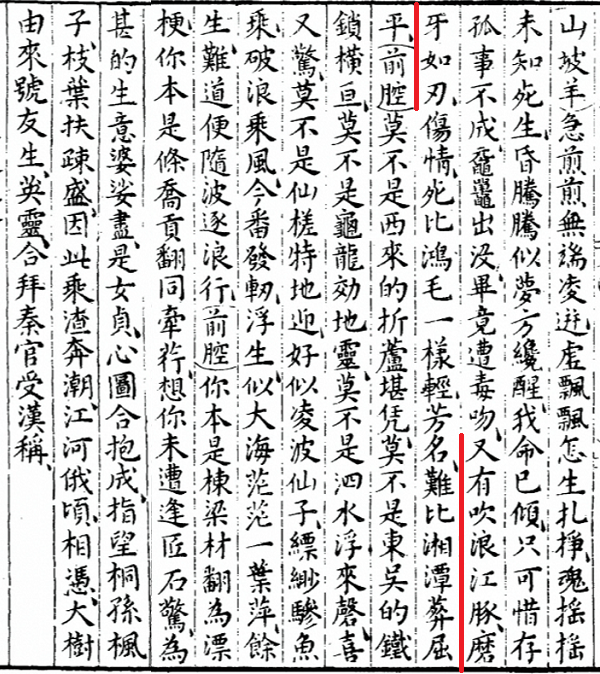 山坡羊急煎煎無端凌迸虛飄飄怎生扎掙、魂搖搖
未知死生昏騰騰似夢方纔醒、我命已傾、只可惜存
孤事不成、黿鼉出没畢竟遭毒吻、又有吹浪江豚磨
牙如刃、傷情、死比鴻毛一樣輕、芳名、難比湘潭葬屈
平、(前腔)莫不是西來的折蘆堪凭、莫不是東吳的鐵
鎖橫亘、莫不是龜龍効地靈、莫不是泗水浮來磬、喜
又驚、莫不是仙槎特地迎、好似凌波仙子、縹緲驂魚
乘、破浪乘風、今番發軔、浮生、似大海茫茫一葉萍、餘
生、難道便隨波逐浪行、(前腔)你本是棟梁材翻為漂
梗、你本是條喬貢翻同牽荇、想你未遭逢匠石驚、為
甚的生意婆娑盡、是女貞、心圖合抱成、指望桐孫楓
子、枝葉扶疎盛、因此乘渣奔潮、江河俄頃、相憑、大樹
由來號友生、英靈、合拜秦官受漢稱、